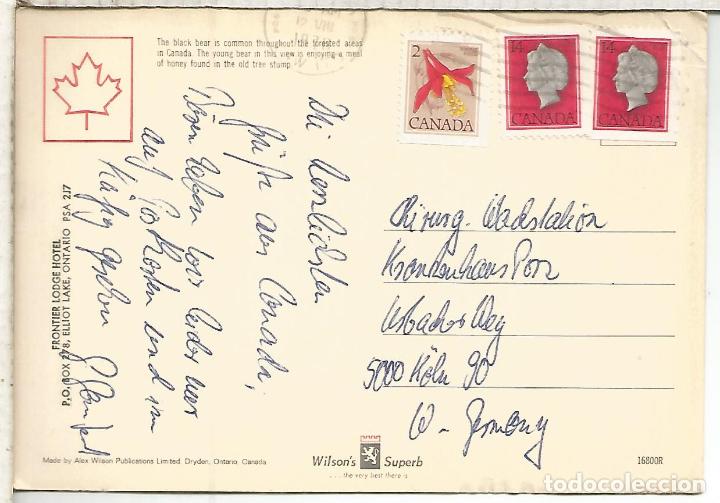 The black bear is common throughout the forested areas
in Canada. The young bear in this view is enjoying a meal
of honey found in the old tree stump.
2
CANADA
14
CANADA
14
CANADA
Die herzlichsten
Grüße aus Canada,
Bären haben wir leider nur
auf Postkarten und im
Käfig gesehen
FRONTIER LODGE HOTEL
P.O. BOX 278, ELLIOT LAKE, ONTARIO P5A 2J7
Chirurg. Wachstation
Krankenhaus Porz
Urbacher Weg
5000 Köln 90
W-Germany
Made by Alex Wilson Publications Limited, Dryden, Ontario, Canada
Wilson's Superb
... the very best there is
16800R
todocoleccion